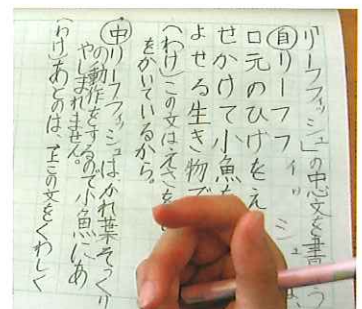 「リーフフィッシュ」の中心文を書こう
自リーフフィッシュは、
口元のひげをえ
せかけて小魚を
よせる生き物で
(わけ)この文はえさを
をかいているから。
中リーフフィッシュはかれ葉そっくり
の動作をするので小魚にあ
やしまれません。
(わけ)あとのは、上この文をくわしく